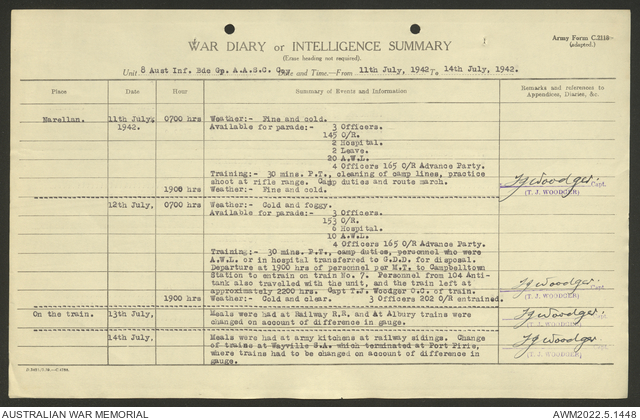 Army Form C.2118.
(adapted.)
WAR DIARY or INTELLIGENCE SUMMARY
(Erase heading not required).
Unit 8 Aust Inf. Bde Gp. A.A.S.C. Coy Date and Time.—From 11th July, 1942 To 14th July, 1942.
Place Date Hour Summary of Events and Information Remarks and references to
Appendices, Diaries, &c.
Narellan. 11th July, 0700 hrs Weather:- Fine and cold.
1942. Available for parade:- 3 Officers.
145 O/R.
2 Hospital.
2 Leave.
20 A.W.L.
4 Officers 165 O/R Advance Party.
Training:- 30 mins. P.T., cleaning of camp lines, practice
shoot at rifle range. Camp duties and route march.
1900 hrs Weather:- Fine and cold.
TJWoodger. Capt.
(T. J. WOODGER)
12th July, 0700 hrs Weather:- Cold and foggy.
Available for parade:- 3 Officers.
153 O/R.
6 Hospital.
10 A.W.L.
4 Officers 165 O/R Advance Party.
Training:- 30 mins. P.T., camp duties, personnel who were
A.W.L. or in hospital transferred to G.D.D. for disposal.
Departure at 1900 hrs of personnel per M.T. to Campbelltown
Station to entrain on train No. 7. Personnel from 104 Anti-
tank also travelled with the unit, and the train left at
approximately 2200 hrs. Capt T.J. Woodger O.C. of train.
1900 hrs Weather:- Cold and clear. 3 Officers 202 O/R entrained.
TJWoodger. Capt.
(T. J. WOODGER)
On the train. 13th July, Meals were had at Railway R.R. and At Albury trains
were changed on account of difference in gauge.
TJWoodger.
(T. J. WOODGER)
14th July, Meals were had at army kitchens at railway sidings. Change
of trains at Wayville S.A. which terminated at Port Pirie,
where trains had to be changed on account of difference in
gauge.
TJWoodger.
(T. J. WOODGER)
AUSTRALIAN WAR MEMORIAL
AWM2022.5.1448